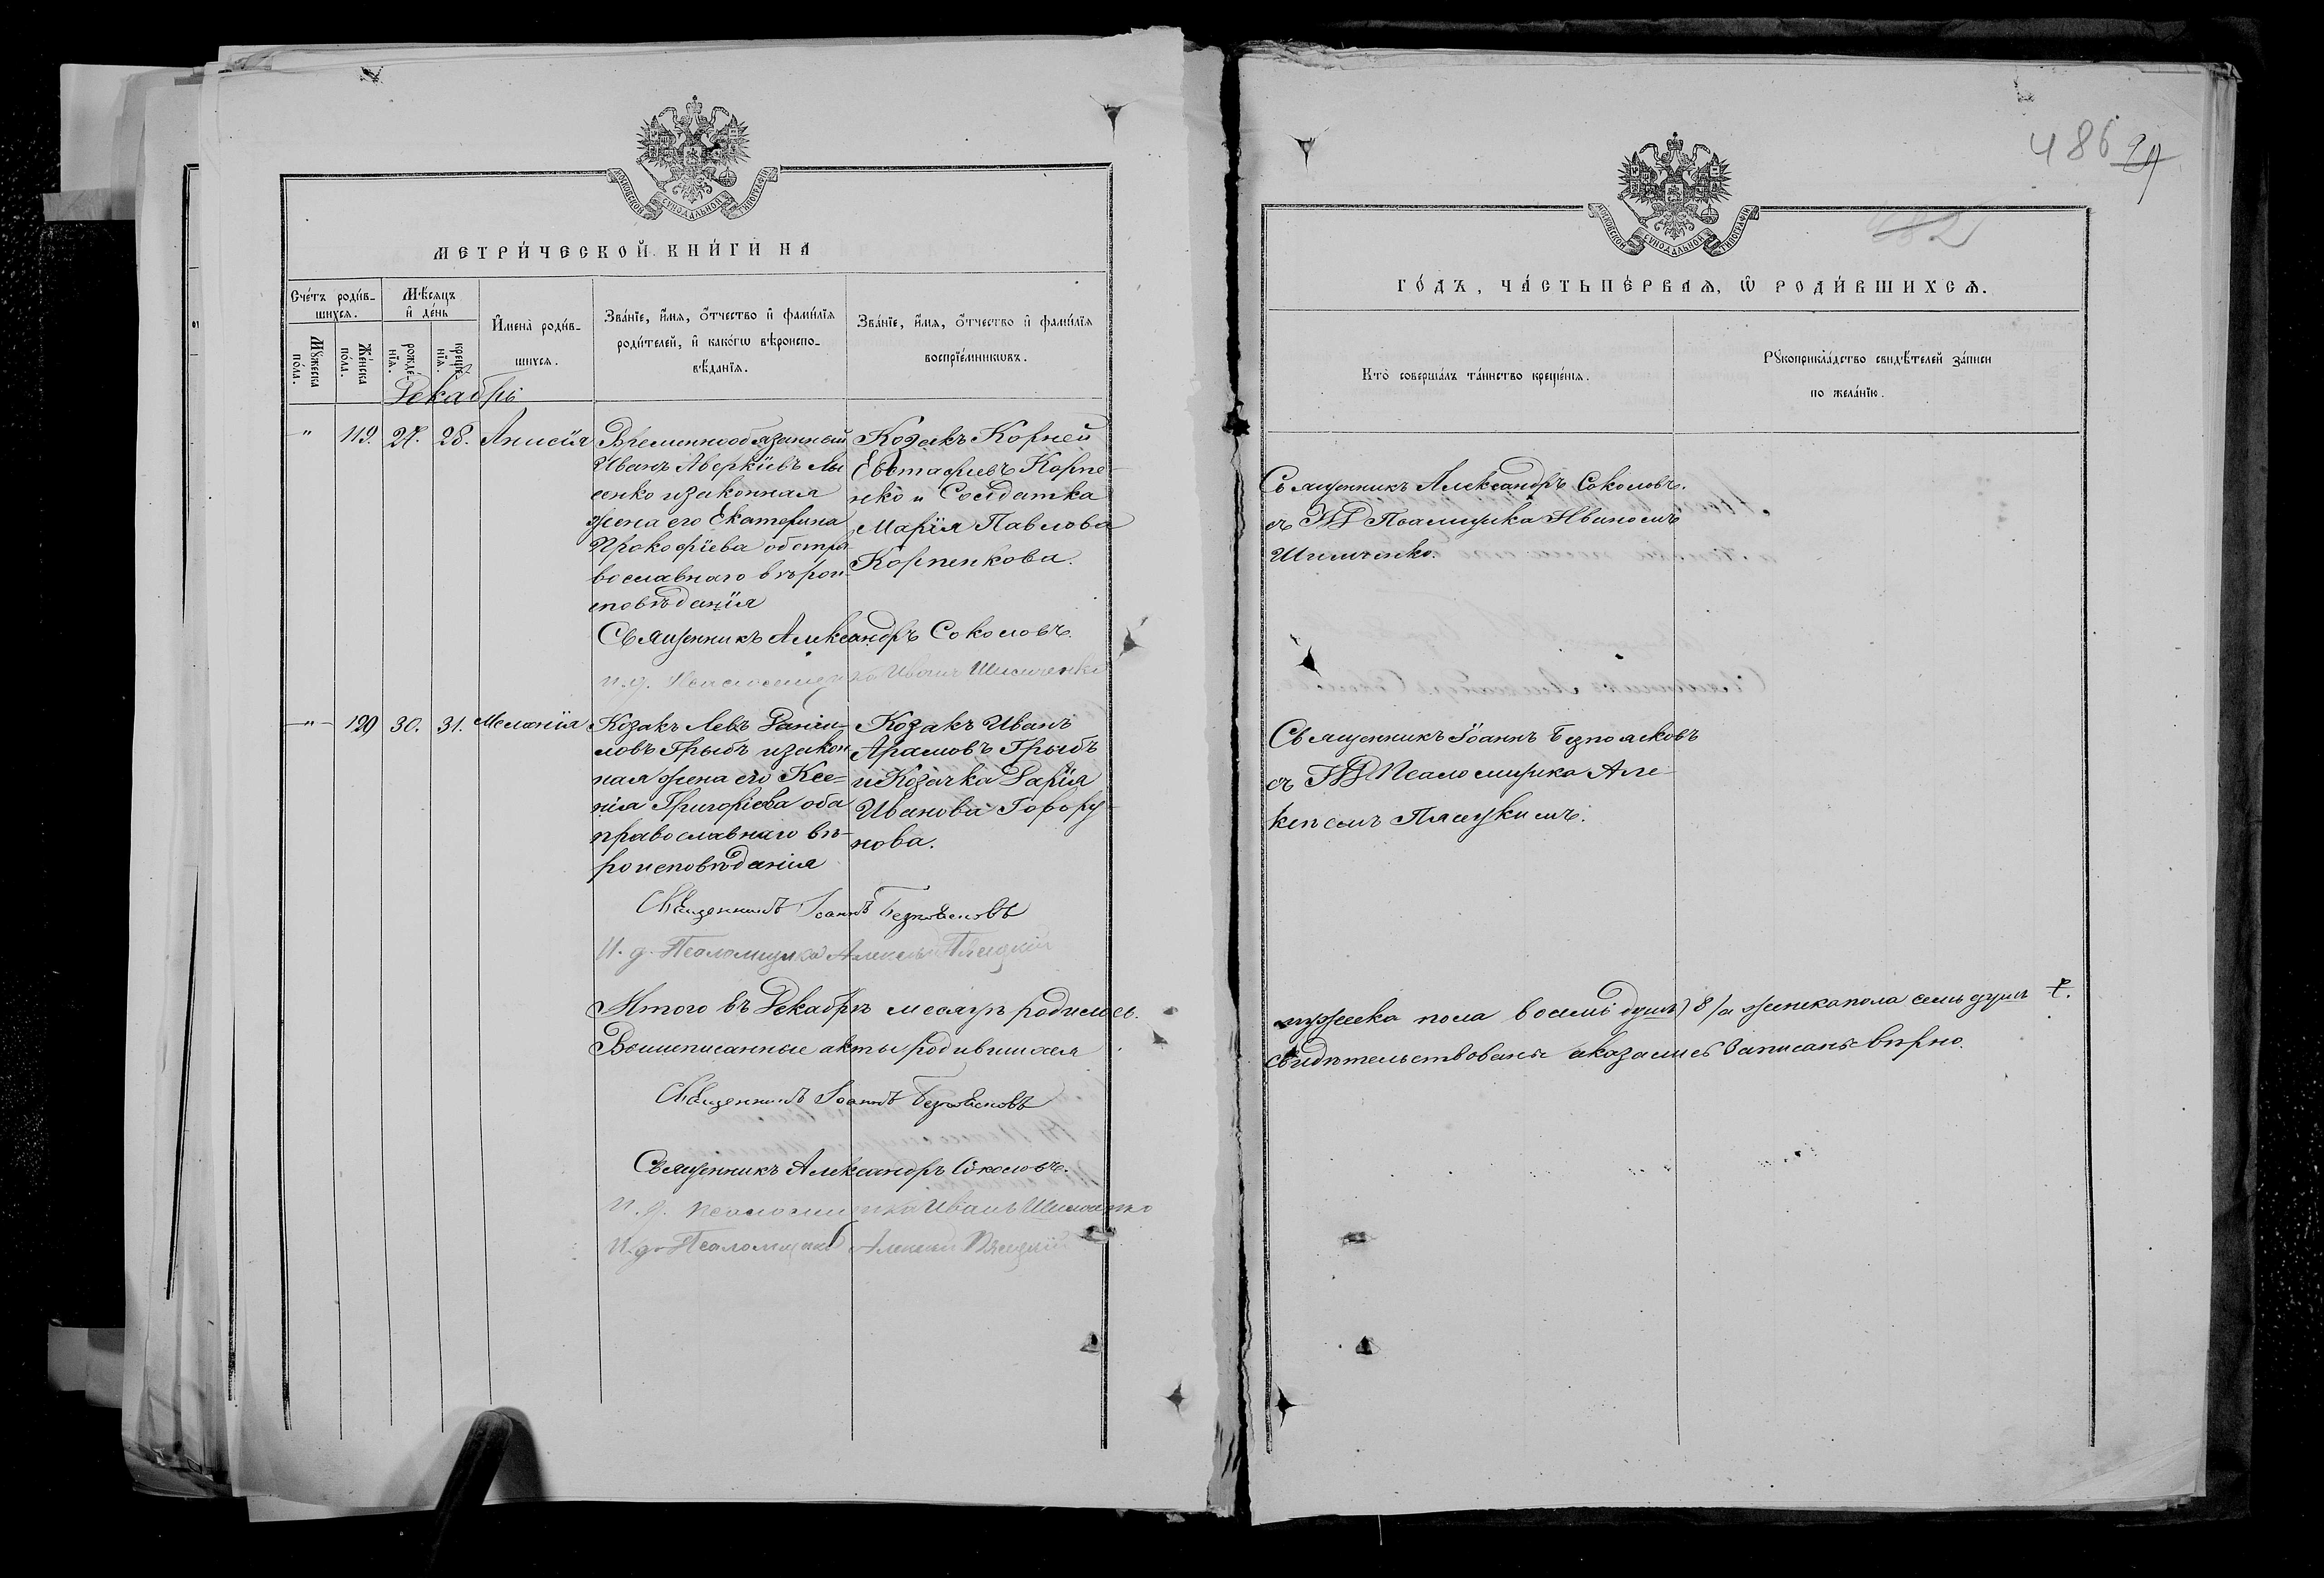 МОСКОВСКОЙ СУНОДАЛЬНОЙ ТИПОГРАФІИ
МЕТРИ́ЧЕСКОЙ КНИ́ГИ НА
Сче́тъ роди́в-
шихся.
Мѣсяцъ
и҆ де́нь
Мꙋ́жеска
по́ла.
Же́нска
по́ла.
рожде-
нїя.
креще-
нїя.
И҆мена̀ роди́в-
шихся.
Зва́нїе, и҆́мя, о҆́тчество и҆ фами́лїя
роди́телей, и҆ како́гѡ вѣроиспо-
вѣ́данїя.
Зва́нїе, и҆́мя, о҆́тчество и҆ фами́лїя
воспрїе́мникѡвъ.
Декабрь
" 119. 27. 28. Анисія
Временнообязанный
Иванъ Аверкіевъ Лы
сенко и законная
жена его Екатерина
Прокофіева оба пра
вославнаго вѣрои
сповѣданія
Козакъ Корней
Евстафіевъ Корпе-
нко и Солдатка
Марія Павлова
Корпенкова.
Священникъ Александръ Соколовъ.
И. д. Псаломщика Иванъ Шимченко
" 120 30. 31. Меланія
Козакъ Левъ Даніи-
ловъ Грыбъ и закон
ная жена его Ксе=
нія Григоріева оба
православнаго вѣ-
роисповѣданія
Козакъ Иванъ
Грыбъ
и Козачка Дарія
Иванова Говору-
нова.
Священникъ Іоаннъ Безпоясковъ
И. д. Псаломщика Алексѣй
Итого въ Декабрѣ месяцѣ родилось.
Вышеписанные акты родившихся
Священникъ Іоаннъ Безпоясковъ
Священникъ Александръ Соколовъ.
И. д. Псаломщика Иванъ Шимченко
И. д. Псаломщика Алексѣй
486
МОСКОВСКОЙ СУНОДАЛЬНОЙ ТИПОГРАФІИ
ГО́ДЪ, ЧА́СТЬ ПЕ́РВАЯ, Ѡ҆ РОДИ́ВШИХСЯ.
Кто̀ соверша́лъ та́инство креще́нїя.
Рꙋкоприкла́дство свидѣ́телей за́писи
по жела́нїю.
Священникъ Александръ Соколовъ.
съ Псаломщика Иваномъ
Шимченко.
Священникъ Іоаннъ Безпоясковъ
съ Псаломщика Але-
ксѣемъ
мужеска пола восемь душъ) 8/ а женска пола семь душъ 7.
свидѣтельствованы оказались записаны вѣрно.